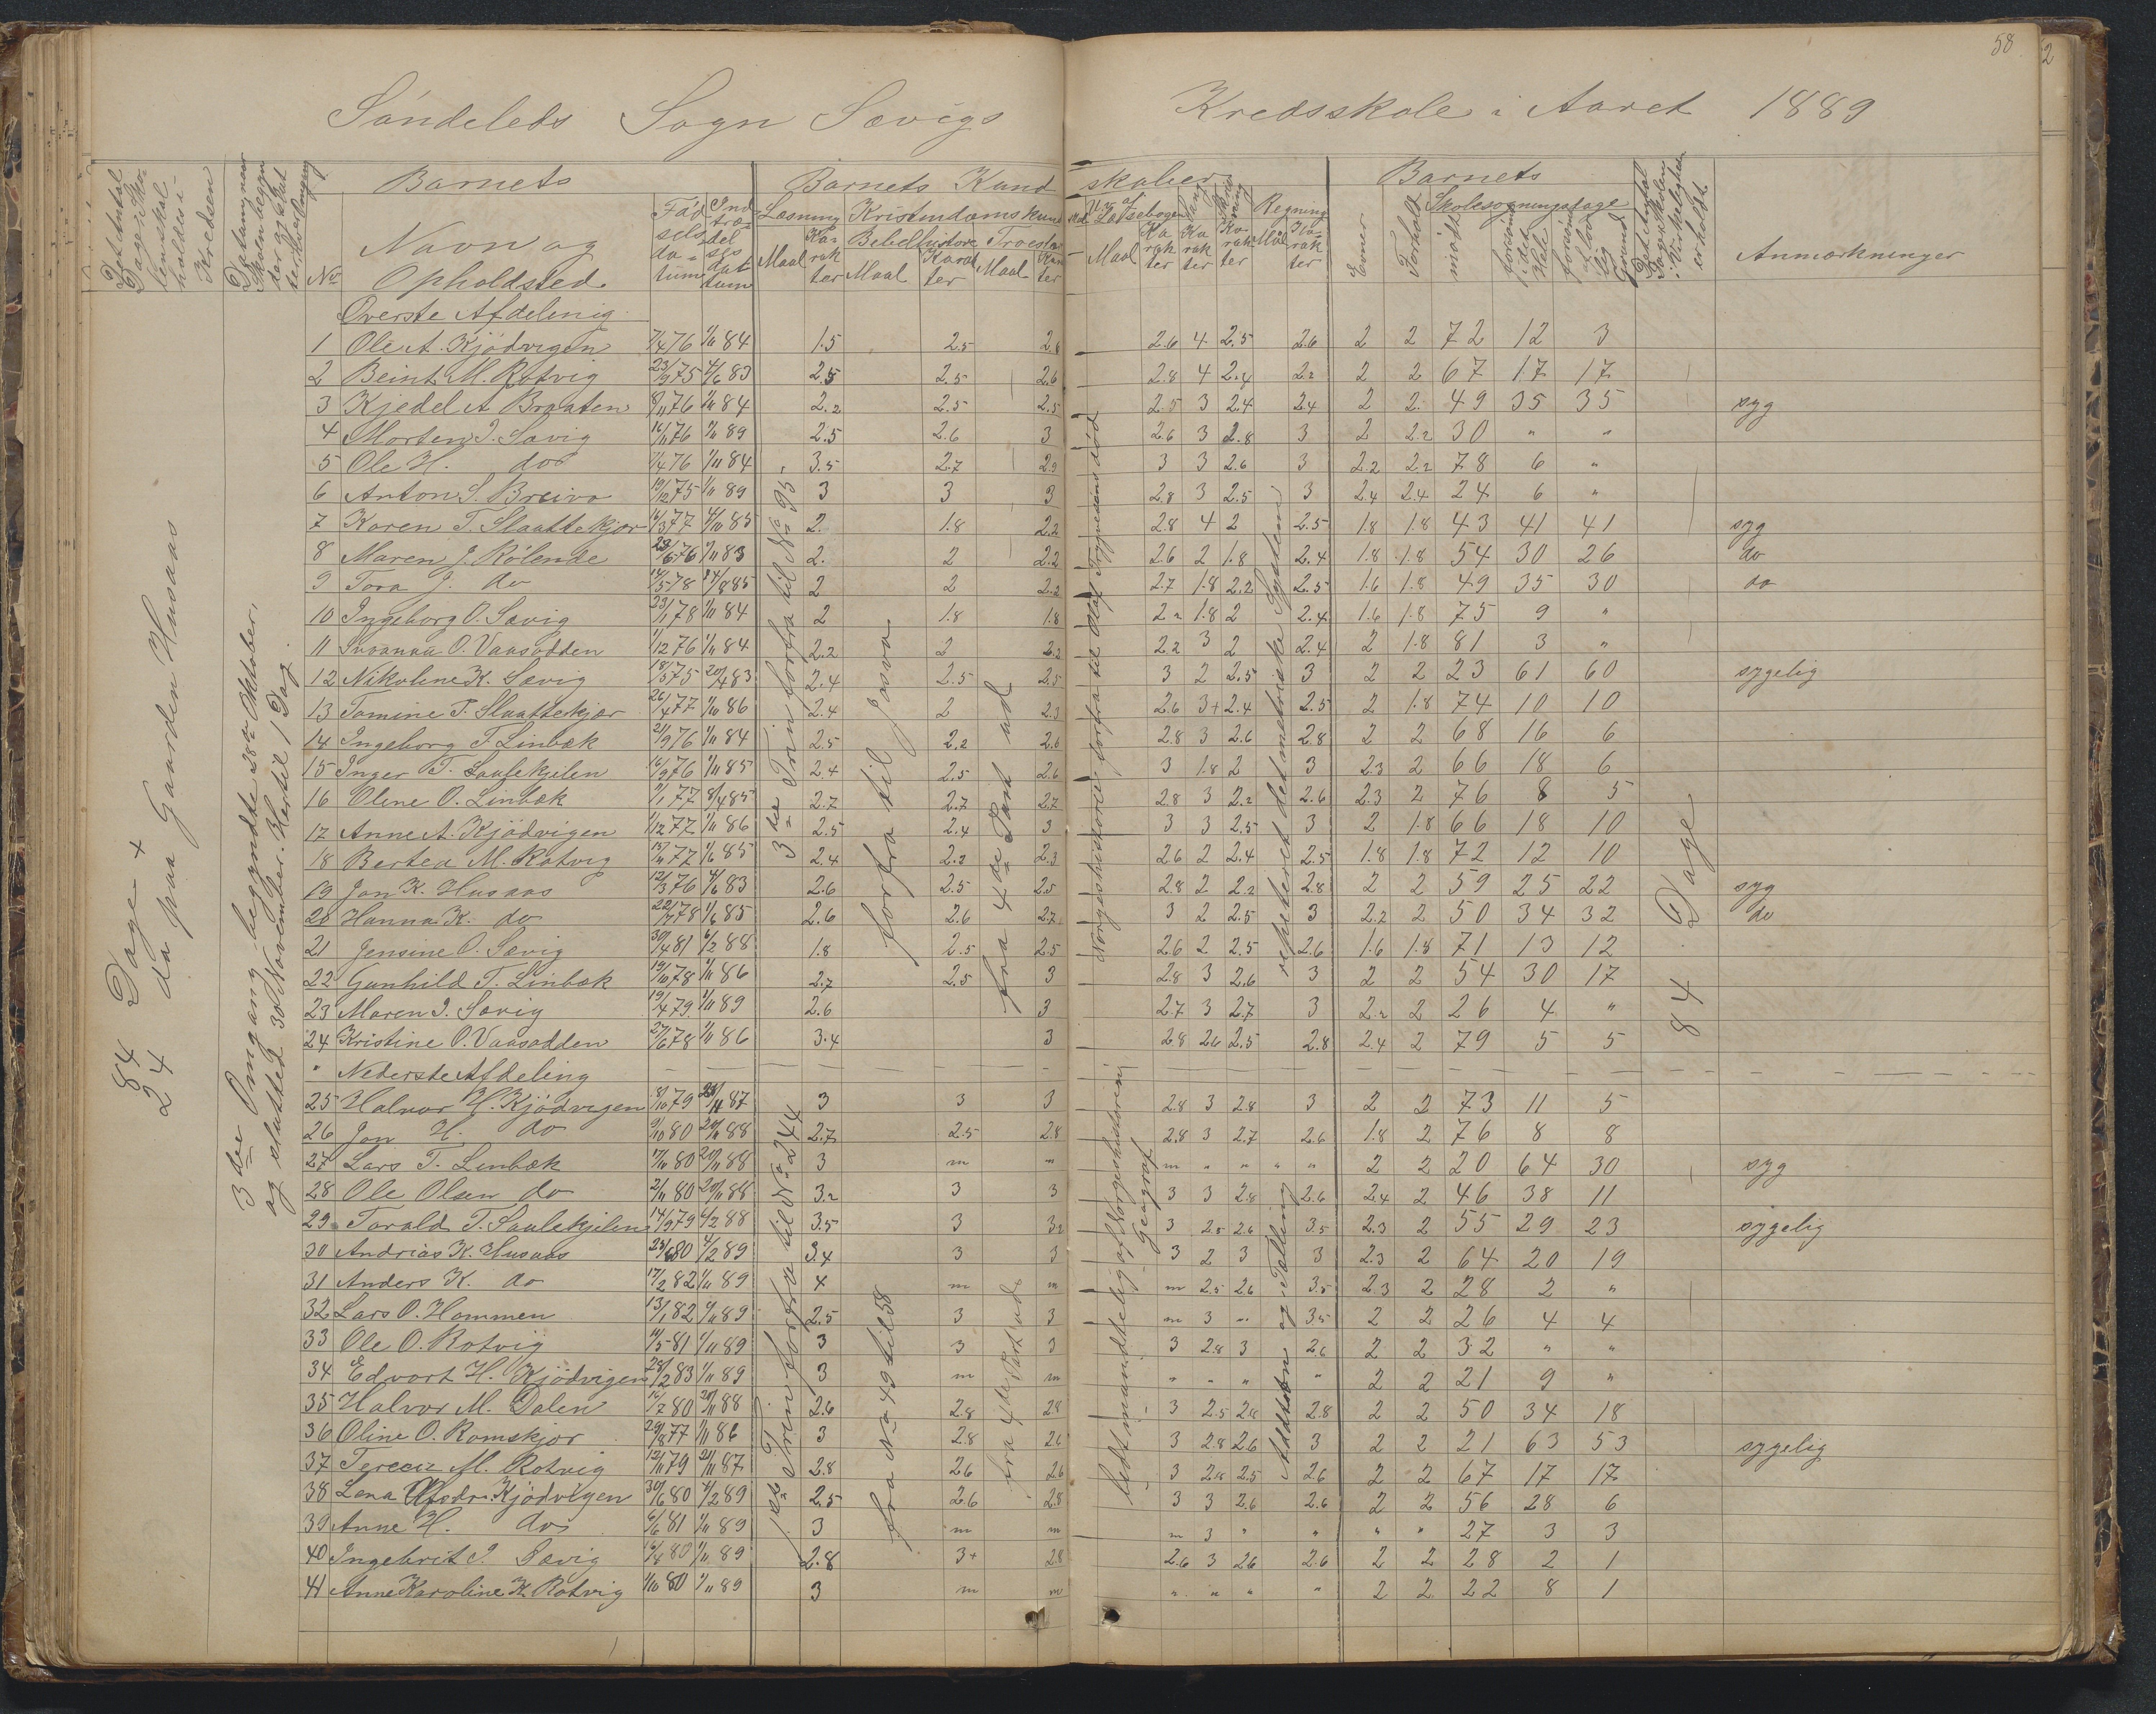 58
Söndeleds Sogn Sævigs Kredsskole i Aaret 1889
Det Antal Dage Skolen skal holdes i Kredsen
Barnets
Barnets Kundskaber
Barnets
No
Navn og Opholdsted
Födselsdatum
Indtrædelsesdatum
Læsning
Kristendomskund
Bibelhistorie
Troeslære
Maal
Karakter
Maal
Karakter
Maal
Læsebogen
Sang
Skrivning
Regning
Evner
Forhold
Skolesøgningsdage
mødt
forsømt i det Hele
forsømt af lovlig Grund
Det Antal Dage Skolen i Virkeligheden er holdt.
Anmærkninger
84 Dage +
24 do paa Gaarden Husaas
3die Omgang begyndte 28de Oktober,
og slutted 30 November. Hertil 1 Dag.
Øverste Afdeling
1 Ole A. Kjödvigen 7/4 76 84 1.5 2.5 2.6 4 2.5 2.6 2 2 72 12 3
2 Beint M. Rotvig 23/9 75 4/6 83 2.5 2.5 2.6 2.8 4 2.4 2.2 2 2 67 17 17
3 Kjedel A Braaten 8/11 76 84 2.2 2.5 2.5 2.5 3 2.4 2.4 2 2. 49 35 35 syg
4 Morten I. Sævig 16/11 76 89 2.5 2.6 3 2.6 3 2.8 3 2 2.2 30 " "
5 Ole H. do 7/4 76 1/11 84 3.5 2.7 2.9 3 3 2.6 3 2.2 2.2 78 6 "
6 Anton S. Breivo 19/12 75 1/11 89 3 3 3 2.8 3 2.5 3 2.4 2.4 24 6 "
7 Karen T. Slaattekjær 16/3 77 85 2. 1.8 2.2 2.8 4 2 2.5 1.8 1.8 43 41 41 syg
8 Maren J. Rølende 76 83 2. 2 2.2 2.6 2 1.8 2.4 1.8 1.8 54 30 26 do
9 Tora J. do 14/5 78 85 2 2 2.2 2.7 1.8 2.2 2.5 1.6 1.8 49 35 30 do
10 Ingeborg O. Sævig 23/1 78 84 2 1.8 1.8 2.2 1.8 2 2.4 1.6 1.8 75 9 "
11 O. Vaasodden 1/12 76 84 2.2 2 2.2 2.2 3 2 2.4 2 1.8 81 3 "
12 Nikoline K. Sævig 18/5 75 83 2.4 2.5 2.5 3 2 2.5 3 2 2 23 61 60 sygelig
13 Tomine T. Slaattekjær 26/4 77 86 2.4 2 2.3 2.6 3+ 2.4 2.5 2 1.8 74 10 10
14 Ingeborg T. Linbæk 2/9 76 1/11 84 2.5 2.2 2.6 2.8 3 2.6 2.8 2 2 68 16 6
15 Inger T. Saulekjilen 16/9 76 1/11 85 2.4 2.5 2.6 3 1.8 2 3 2.3 2 66 18 6
16 Oline O. Linbæk 77 85 2.7 2.7 2.7 2.8 3 2.2 2.6 2.3 2 76 8 5
17 Anne A. Kjödvigen 1/12 77 1/11 86 2.5 2.4 3 3 3 2.5 3 2 1.8 66 18 10
18 Bertea M. Rotvig 77 85 2.4 2.2 2.3 2.6 2 2.4 2.5 1.8 1.8 72 12 10
19 Jon K. Husaas 12/3 76 4/6 83 2.6 2.5 2.5 2.8 2 2.2 2.8 2 2 59 25 22 syg
20 Hanna K. do 78 85 2.6 2.6 2.7 3 2 2.5 3 2.2 2 50 34 32 do
21 Jensine O. Sævig 30/4 81 6/2 88 1.8 2.5 2.5 2.6 2 2.5 2.6 1.6 1.8 71 13 12
22 Gunhild T. Linbæk 19/10 78 1/11 86 2.7 2.5 3 2.8 3 2.6 3 2 2 54 30 17
23 Maren I. Sævig 19/4 79 1/11 89 2.6 3 2.7 3 2.7 3 2.2 2 26 4 "
24 Kristine O. Vaasodden 27/6 78 1/11 86 3.4 3 2.8 2.6 2.5 2.8 2.4 2 79 5 5
" Nederste Afdeling
25 Halvor H. Kjödvigen 8/10 79 87 3 3 3 2.8 3 2.8 3 2 2 73 11 5
26 Jon H. do 9/10 80 88 2.7 2.5 2.8 2.8 3 2.7 2.6 1.8 2 76 8 8
27 Lars T. Linbæk 80 88 3 m " m " " " " 2 2 20 64 30 syg
28 Ole Olsen do 2/11 80 88 3.2 3 3 3 3 2.8 2.6 2.4 2 46 38 11
29 Torald T. Saulekjilen 14/9 79 6/2 88 3.5 3 3.2 3 2.8 2.6 3.5 2.3 2 55 29 23 sygelig
30 Andrias K. Husaas 23/6 80 4/2 89 3.4 3 3 3 2 3 3 2.3 2 64 20 19
31 Anders K. do 17/2 82 1/11 89 4 m m m 2.5 2.6 3.5 2.3 2 28 2 "
32 Lars O. Hommen 13/1 82 89 2.5 3 3 m 3 " 3.5 2 2 26 4 4
33 Ole O. Rotvig 5 81 1/11 89 3 3 3 3 2.8 3 2.6 2 2 32 " "
34 Edvart H. Kjödvigen 28/2 83 1/11 89 3 m m " " " " 2 2 21 9 "
35 Halvor M. Dalen 16/7 80 88 2.6 2.8 2.8 3 2.5 2.8 2.8 2 2 50 34 18
36 Oline O. Romskjær 29/8 77 1/11 86 3 2.8 2.6 3 2.8 2.6 3 2 2 21 63 53 sygelig
37 M. Rotvig 12/11 79 87 2.8 2.6 2.6 3 2.8 2.5 2.6 2 2 67 17 17
38 Lena Kjödvigen 30/6 80 4/2 89 2.5 2.6 2.8 3 3 2.6 2.6 2 2 56 28 6
39 Anne H. do 6/6 81 1/11 89 3 m m m 3 " " " " 27 3 3
40 Ingebrit I. Sævig 16/4 80 1/11 89 2.8 3+ 2.8 2.6 3 2.6 2.6 2 2 28 2 1
41 Anne Karoline K. Rotvig 1/10 80 1/11 89 3 m m " " " " 2 2 22 8 1
3die Trin forfra til No 95
forfra til Josva
fra 4de Part ud
Norgeshistorie forfra til Olaf Trygvesöns död
repeteret det metriske System
84 Dage
1ste Trin forfra til No 244
fra No 49 til 58
fra 4de Part ud
lidt mundtlig af Norgeshistorien
Geografi
Addition og Tælling